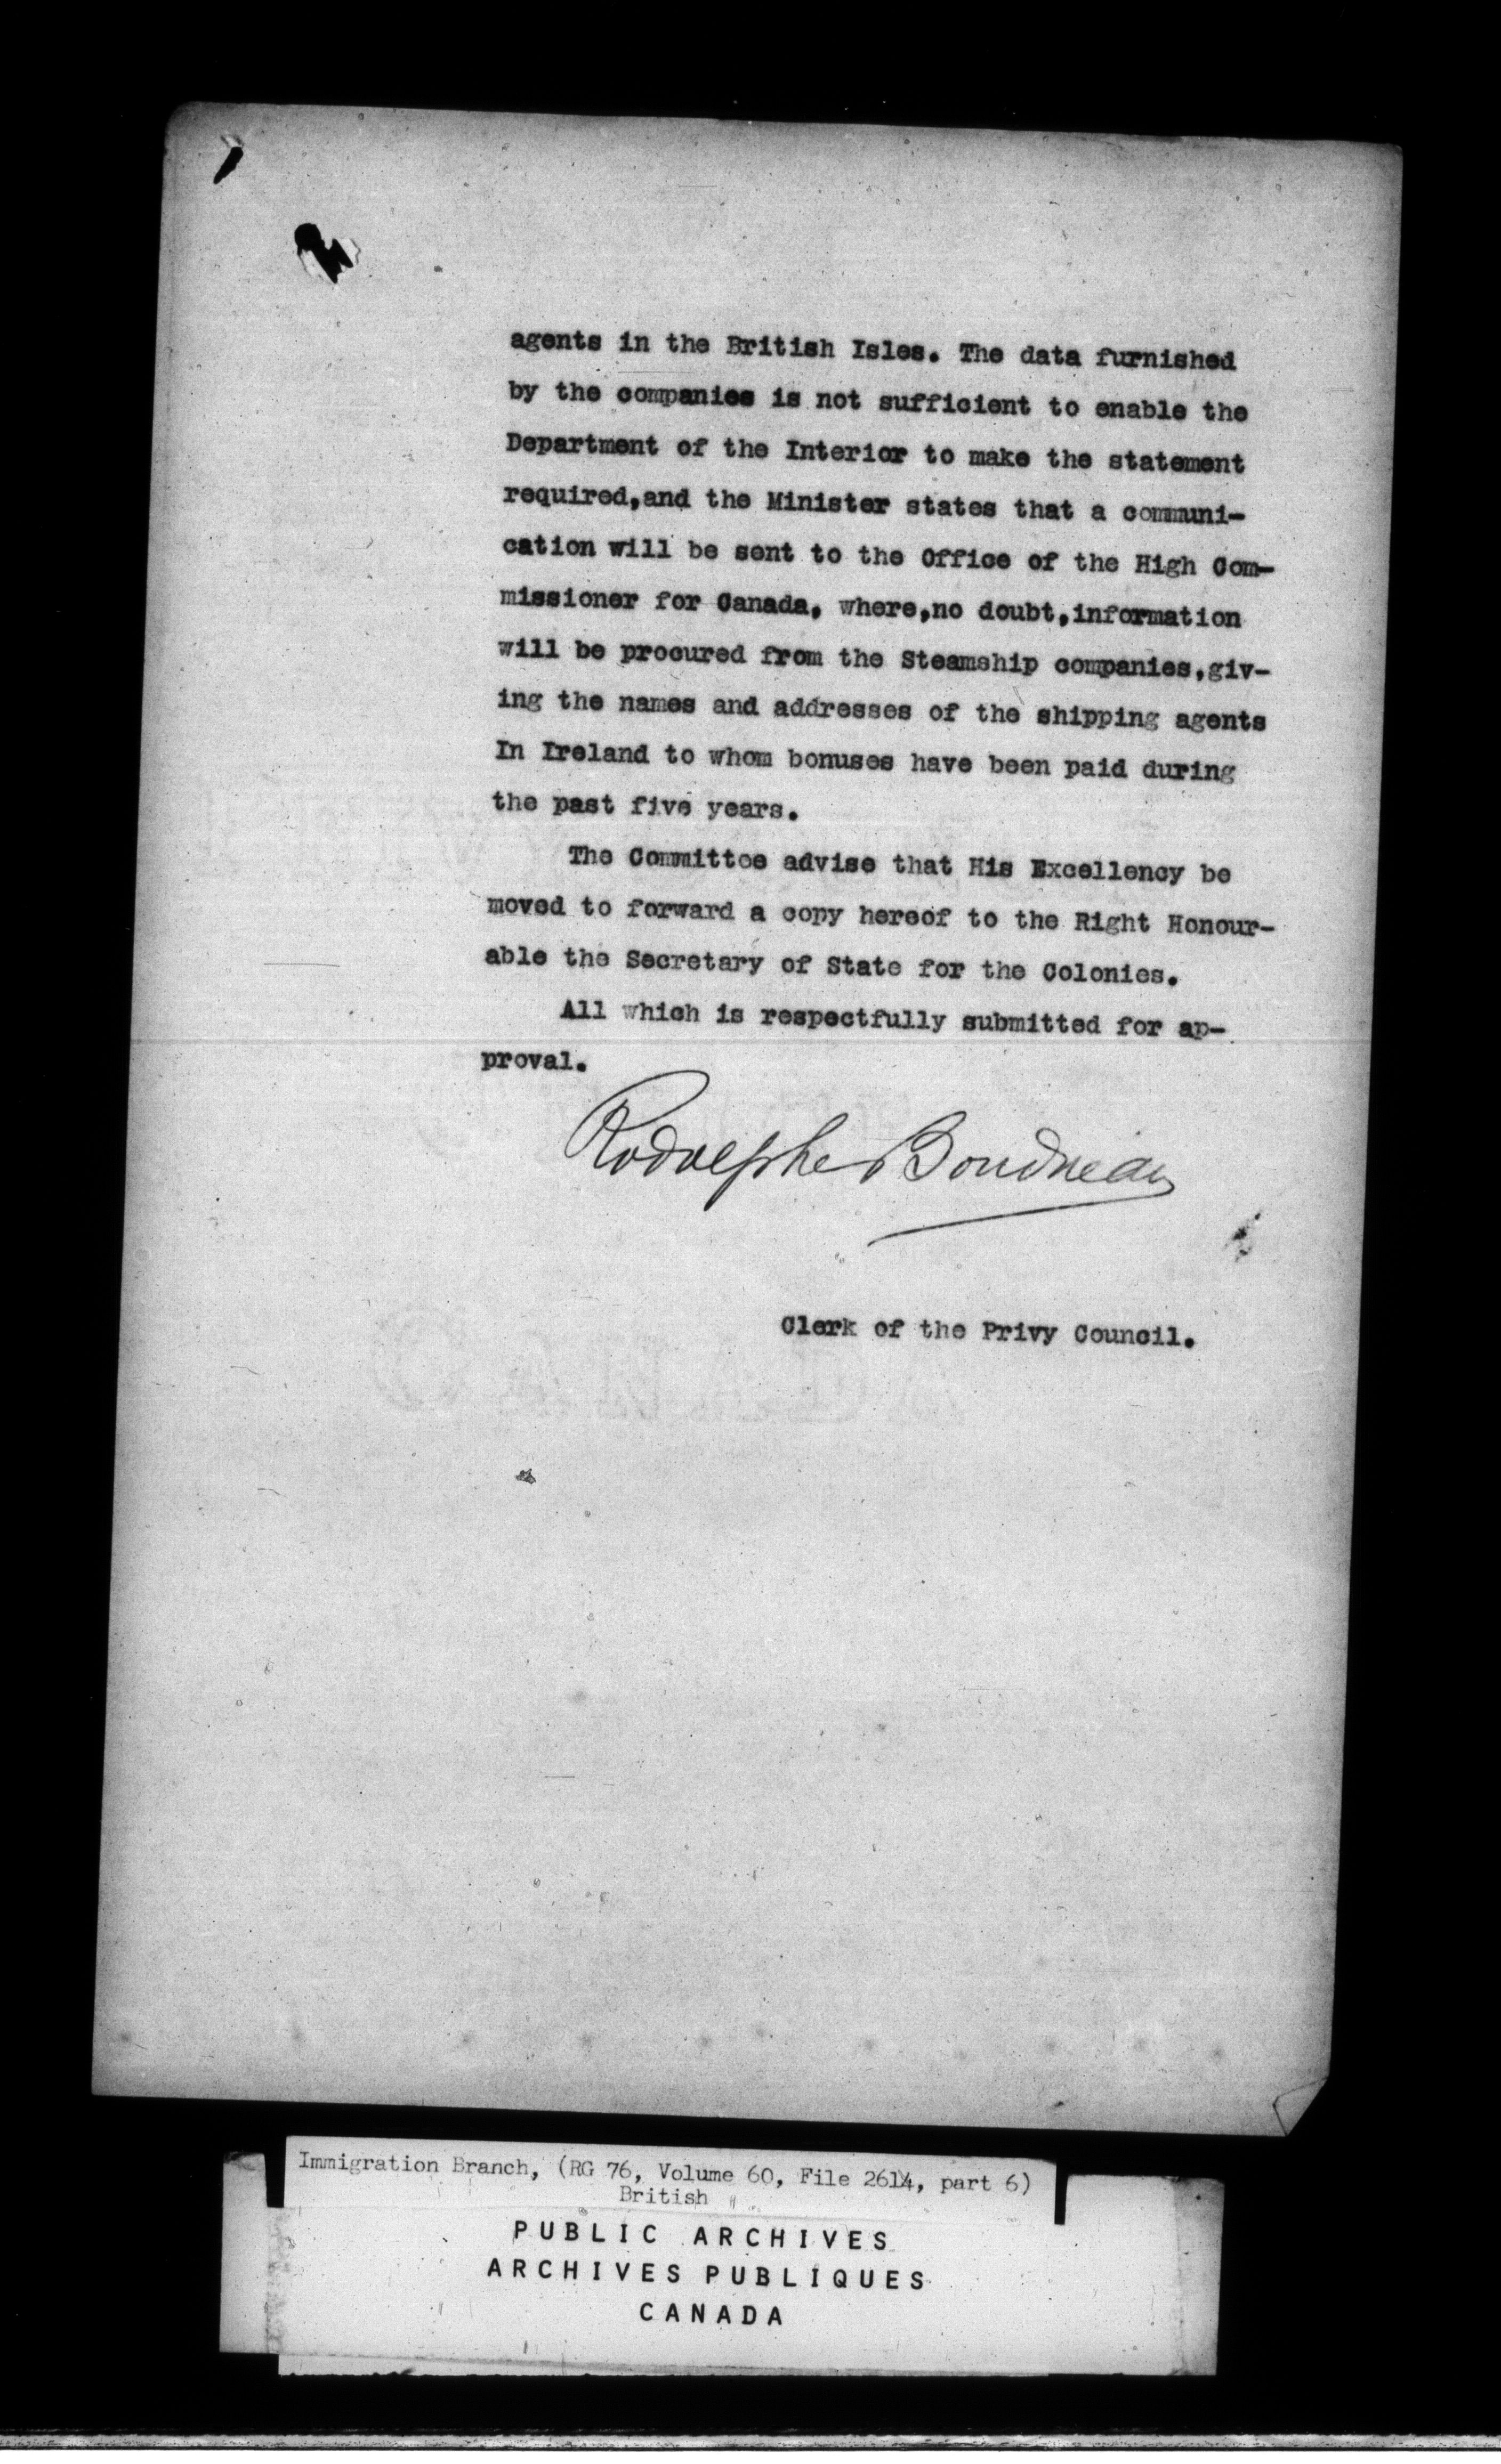 agents in the British Isles. The data furnished
by the companies is not sufficient to enable the
Department of the Interior to make the statement
required,and the Minister states that a communi-
cation will be sent to the Office of the High Com-
missioner for Canada, where,no doubt,information
will be procured from the Steamship companies,giv-
ing the names and addresses of the shipping agents
In Ireland to whom bonuses have been paid during
the past five years.
The Committee advise that His Excellency be
moved to forward a copy hereof to the Right Honour-
able the Secretary of State for the Colonies.
All which is respectfully submitted for ap-
proval.
Rodolphe Boudreau
Clerk of the Privy Council.
Immigration Branch, (RG 76, Volume 60, File 2614, part 6)
British
PUBLIC ARCHIVES
ARCHIVES PUBLIQUES
CANADA